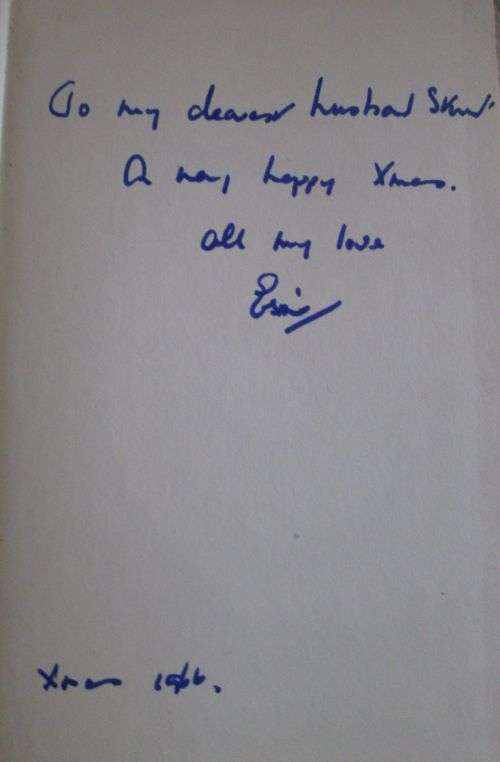 To my dearest husband
A very happy Xmas.
all my love
Xmas 1966.